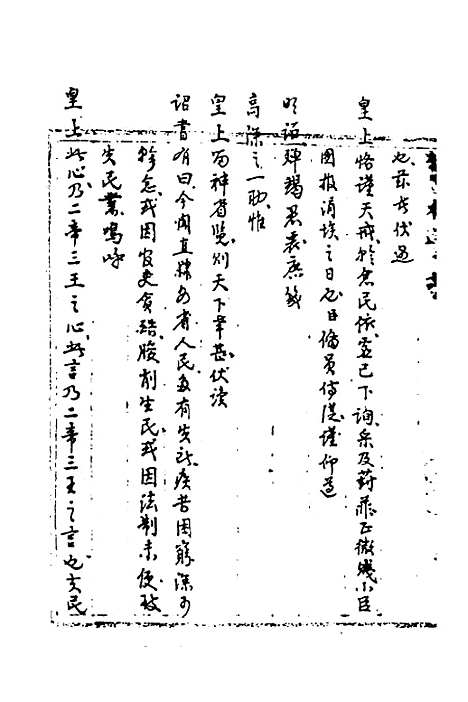 也茲者伏遇
皇上恪謹天戒軫念民依虛己下詢采及葑菲正微賤小臣
圖報涓埃之日也臣備員侍從謹仰遵
明詔殫竭愚衷庶幾
高深之一助惟
皇上留神省覽則天下幸甚伏讀
詔書有曰今聞直隸各省人民多有失所疾苦困窮深可
軫念或因官吏貪酷朘削生民或因法制未便致
失民業嗚呼
皇上此心乃二帝三王之心此言乃二帝三王之言也夫民